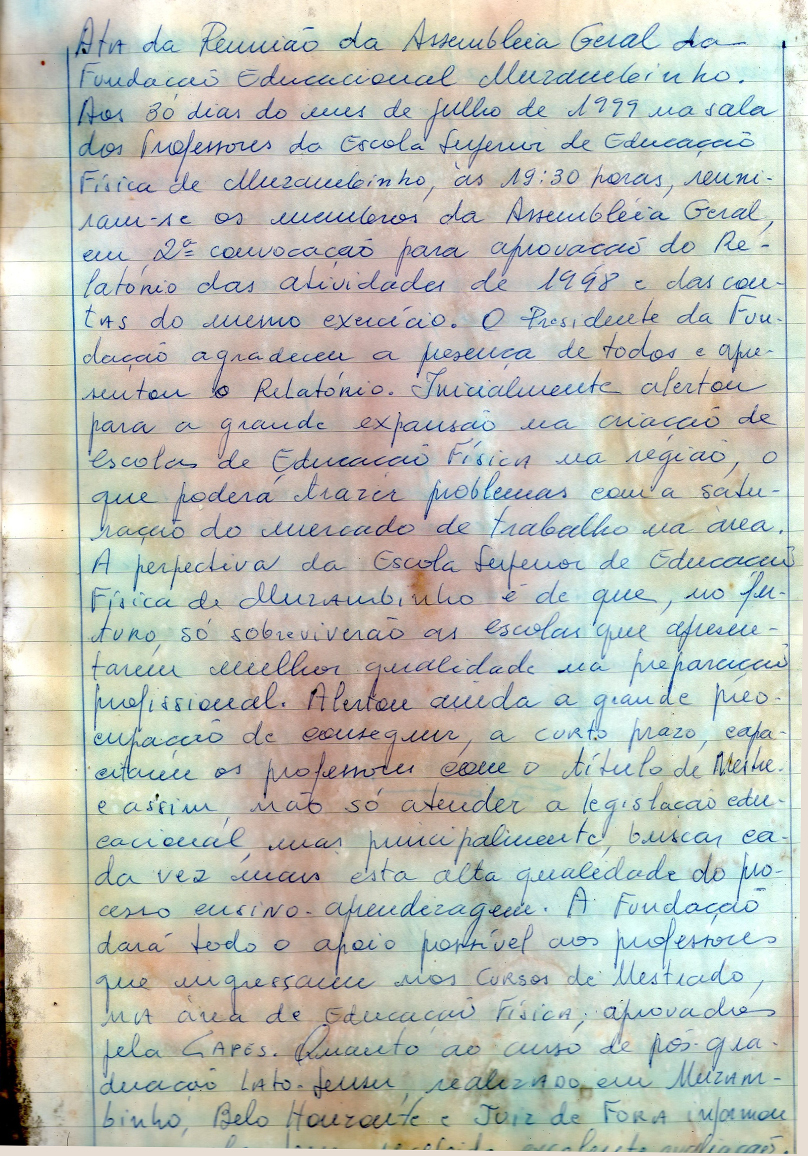 Ata da Reunião da Assembleia Geral da
Fundação Educacional Muzambinho.
Aos 30 dias do mes de Julho de 1999 na sala
dos Professores da Escola Superior de Educação
Física de Muzambinho, às 19:30 horas, reuni-
ram-se os membros da Assembléia Geral,
em 2ª convocação para aprovação do Re-
latório das atividades de 1998 e das con-
tas do mesmo exercício. O Presidente da Fun-
dação agradeceu a presença de todos e apre-
sentou o Relatório. Inicialmente alertou
para a grande expansão na criação de
escolas de Educação Física na região, o
que poderá trazer problemas com a satu-
ração do mercado de trabalho na área.
A perpectiva da Escola Superior de Educação
Física de Muzambinho é de que, no fu-
turo só sobreviverão as escolas que apresen-
tarem melhor qualidade na preparação
profissional. Alertou ainda a grande preo-
cupação de conseguir, a curto prazo, capa-
citarem os professores com o título de Mestre
e assim, não só atender a legislação edu-
cacional, mas principalmente, buscar ca-
da vez mais esta alta qualidade do pro-
cesso ensino-aprendizagem. A Fundação
dará todo o apoio possível aos professores
que ingressarem nos cursos de Mestrado,
na área de Educação Física, aprovados
pela CAPES. Quanto ao curso de pós-gra-
duação Lato-Sensu, realizado em Muzam-
binho, Belo Horizonte e Juiz de Fora informou
excelente avaliação.